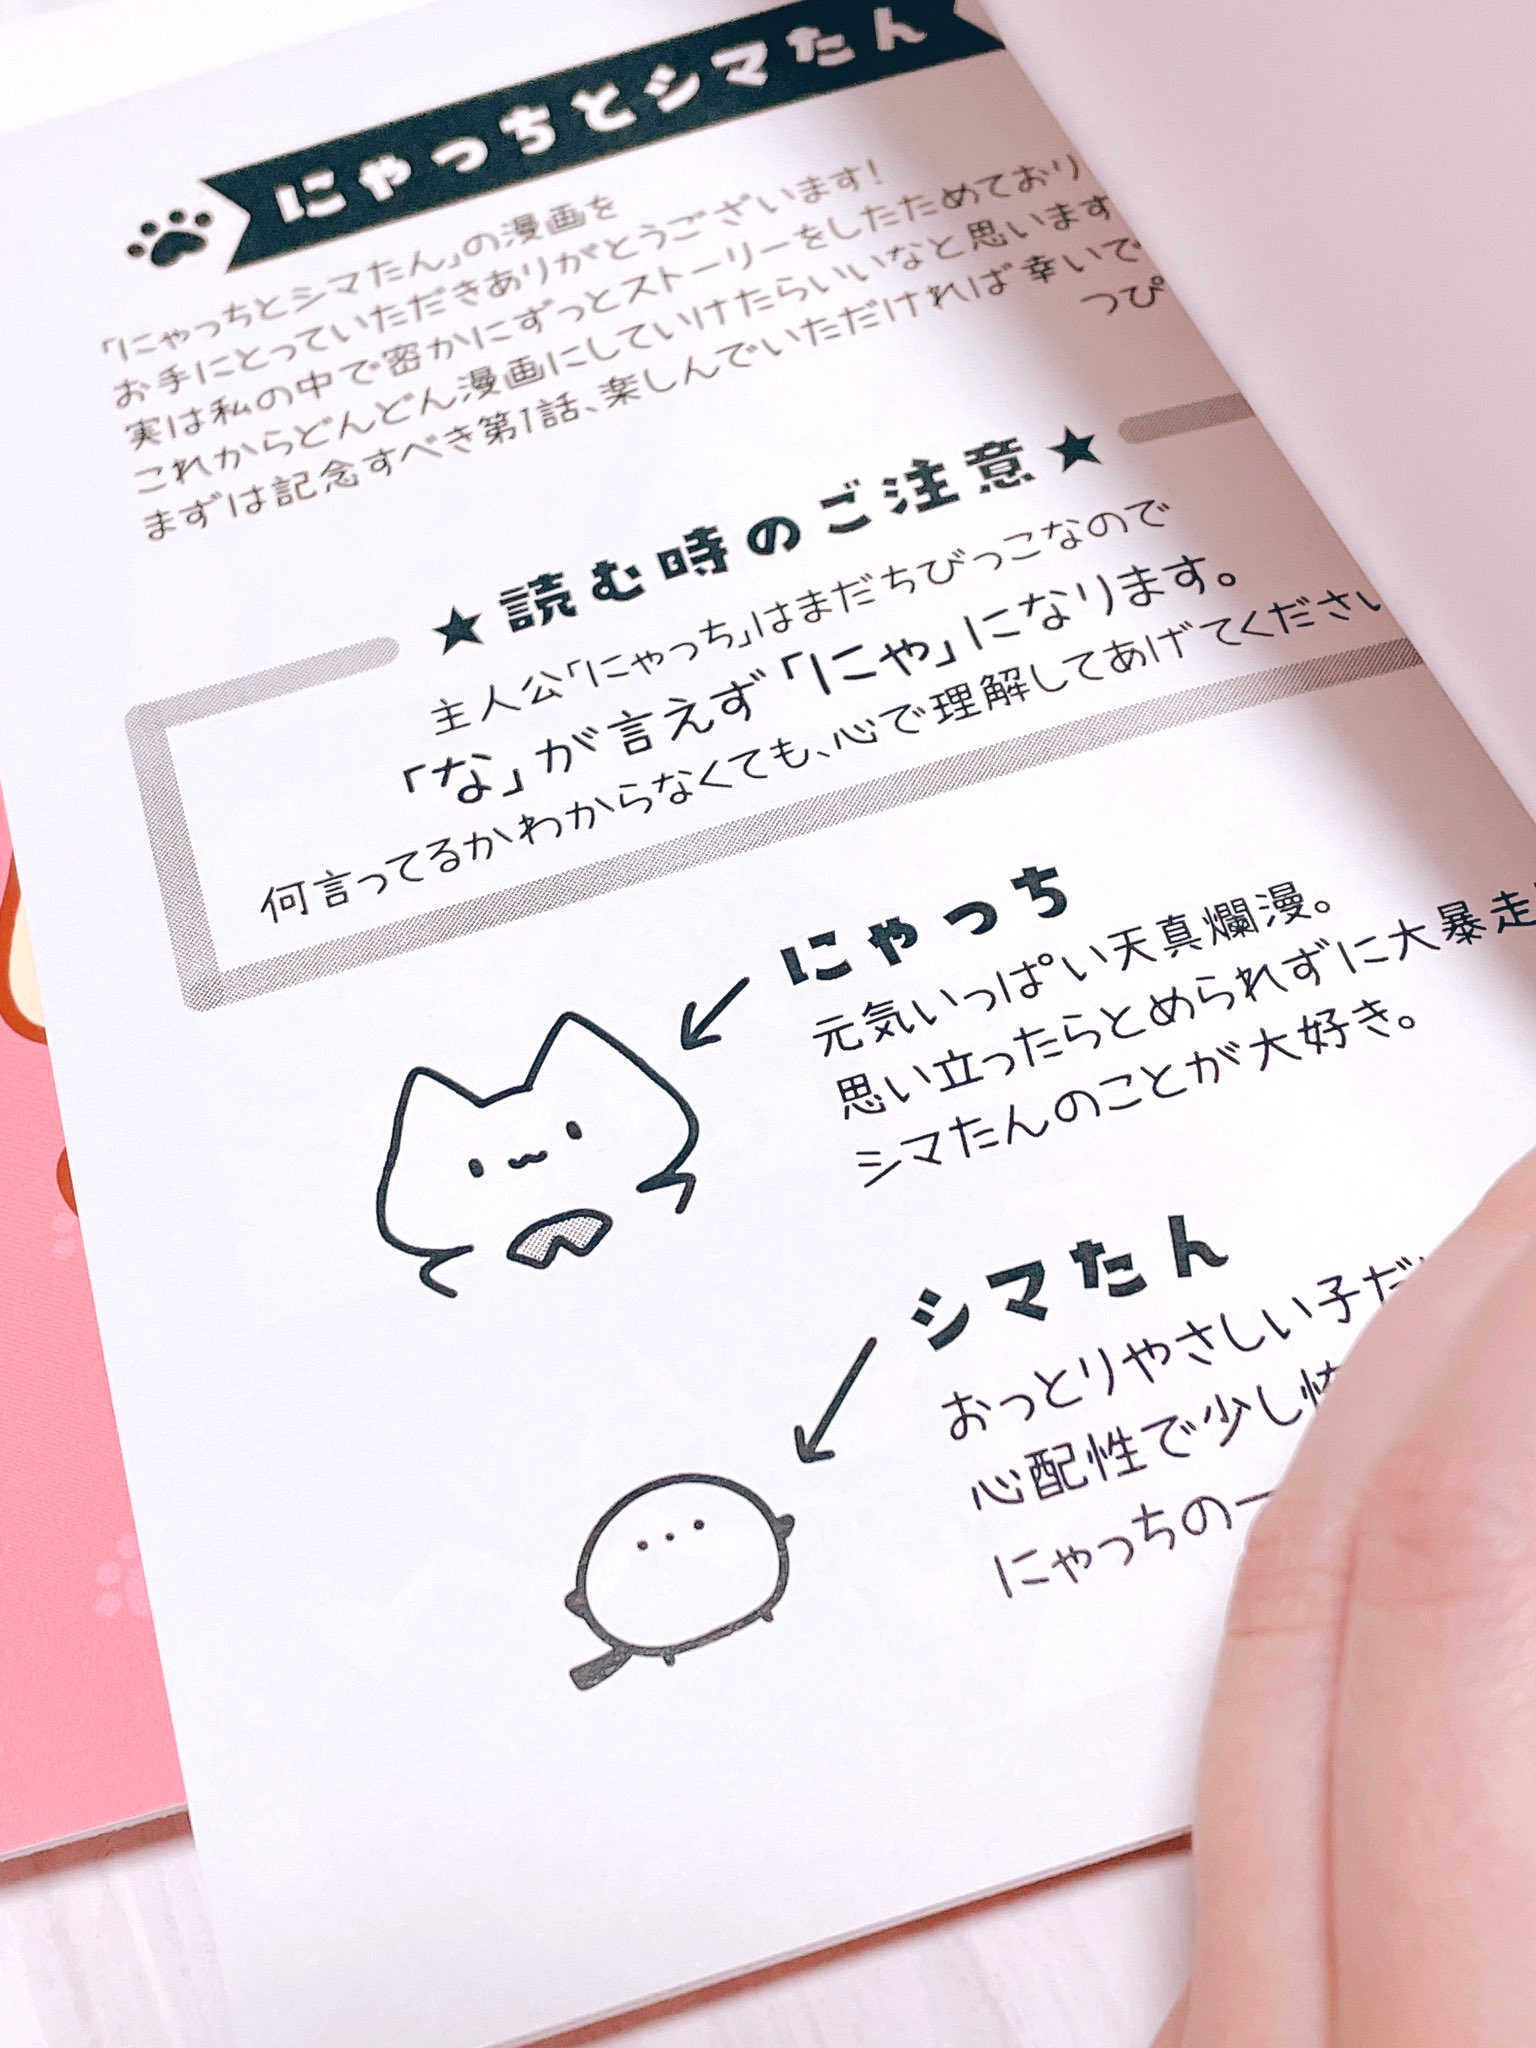 にゃっちとシマたん
「にゃっちとシマたん」の漫画を
お手にとっていただきありがとうございます!
実は私の中で密かにずっとストーリーをしたためており
これからどんどん漫画にしていけたらいいなと思います
まずは記念すべき第1話、楽しんでいただければ幸いで
つぴ
★読む時のご注意★
主人公「にゃっち」はまだちびっこなので
「な」が言えず「にゃ」になります。
何言ってるかわからなくても、心で理解してあげてください
にゃっち
元気いっぱい天真爛漫。
思い立ったらとめられずに大暴走
シマたんのことが大好き。
シマたん
おっとりやさしい子だ
心配性で少し
にゃっちの一